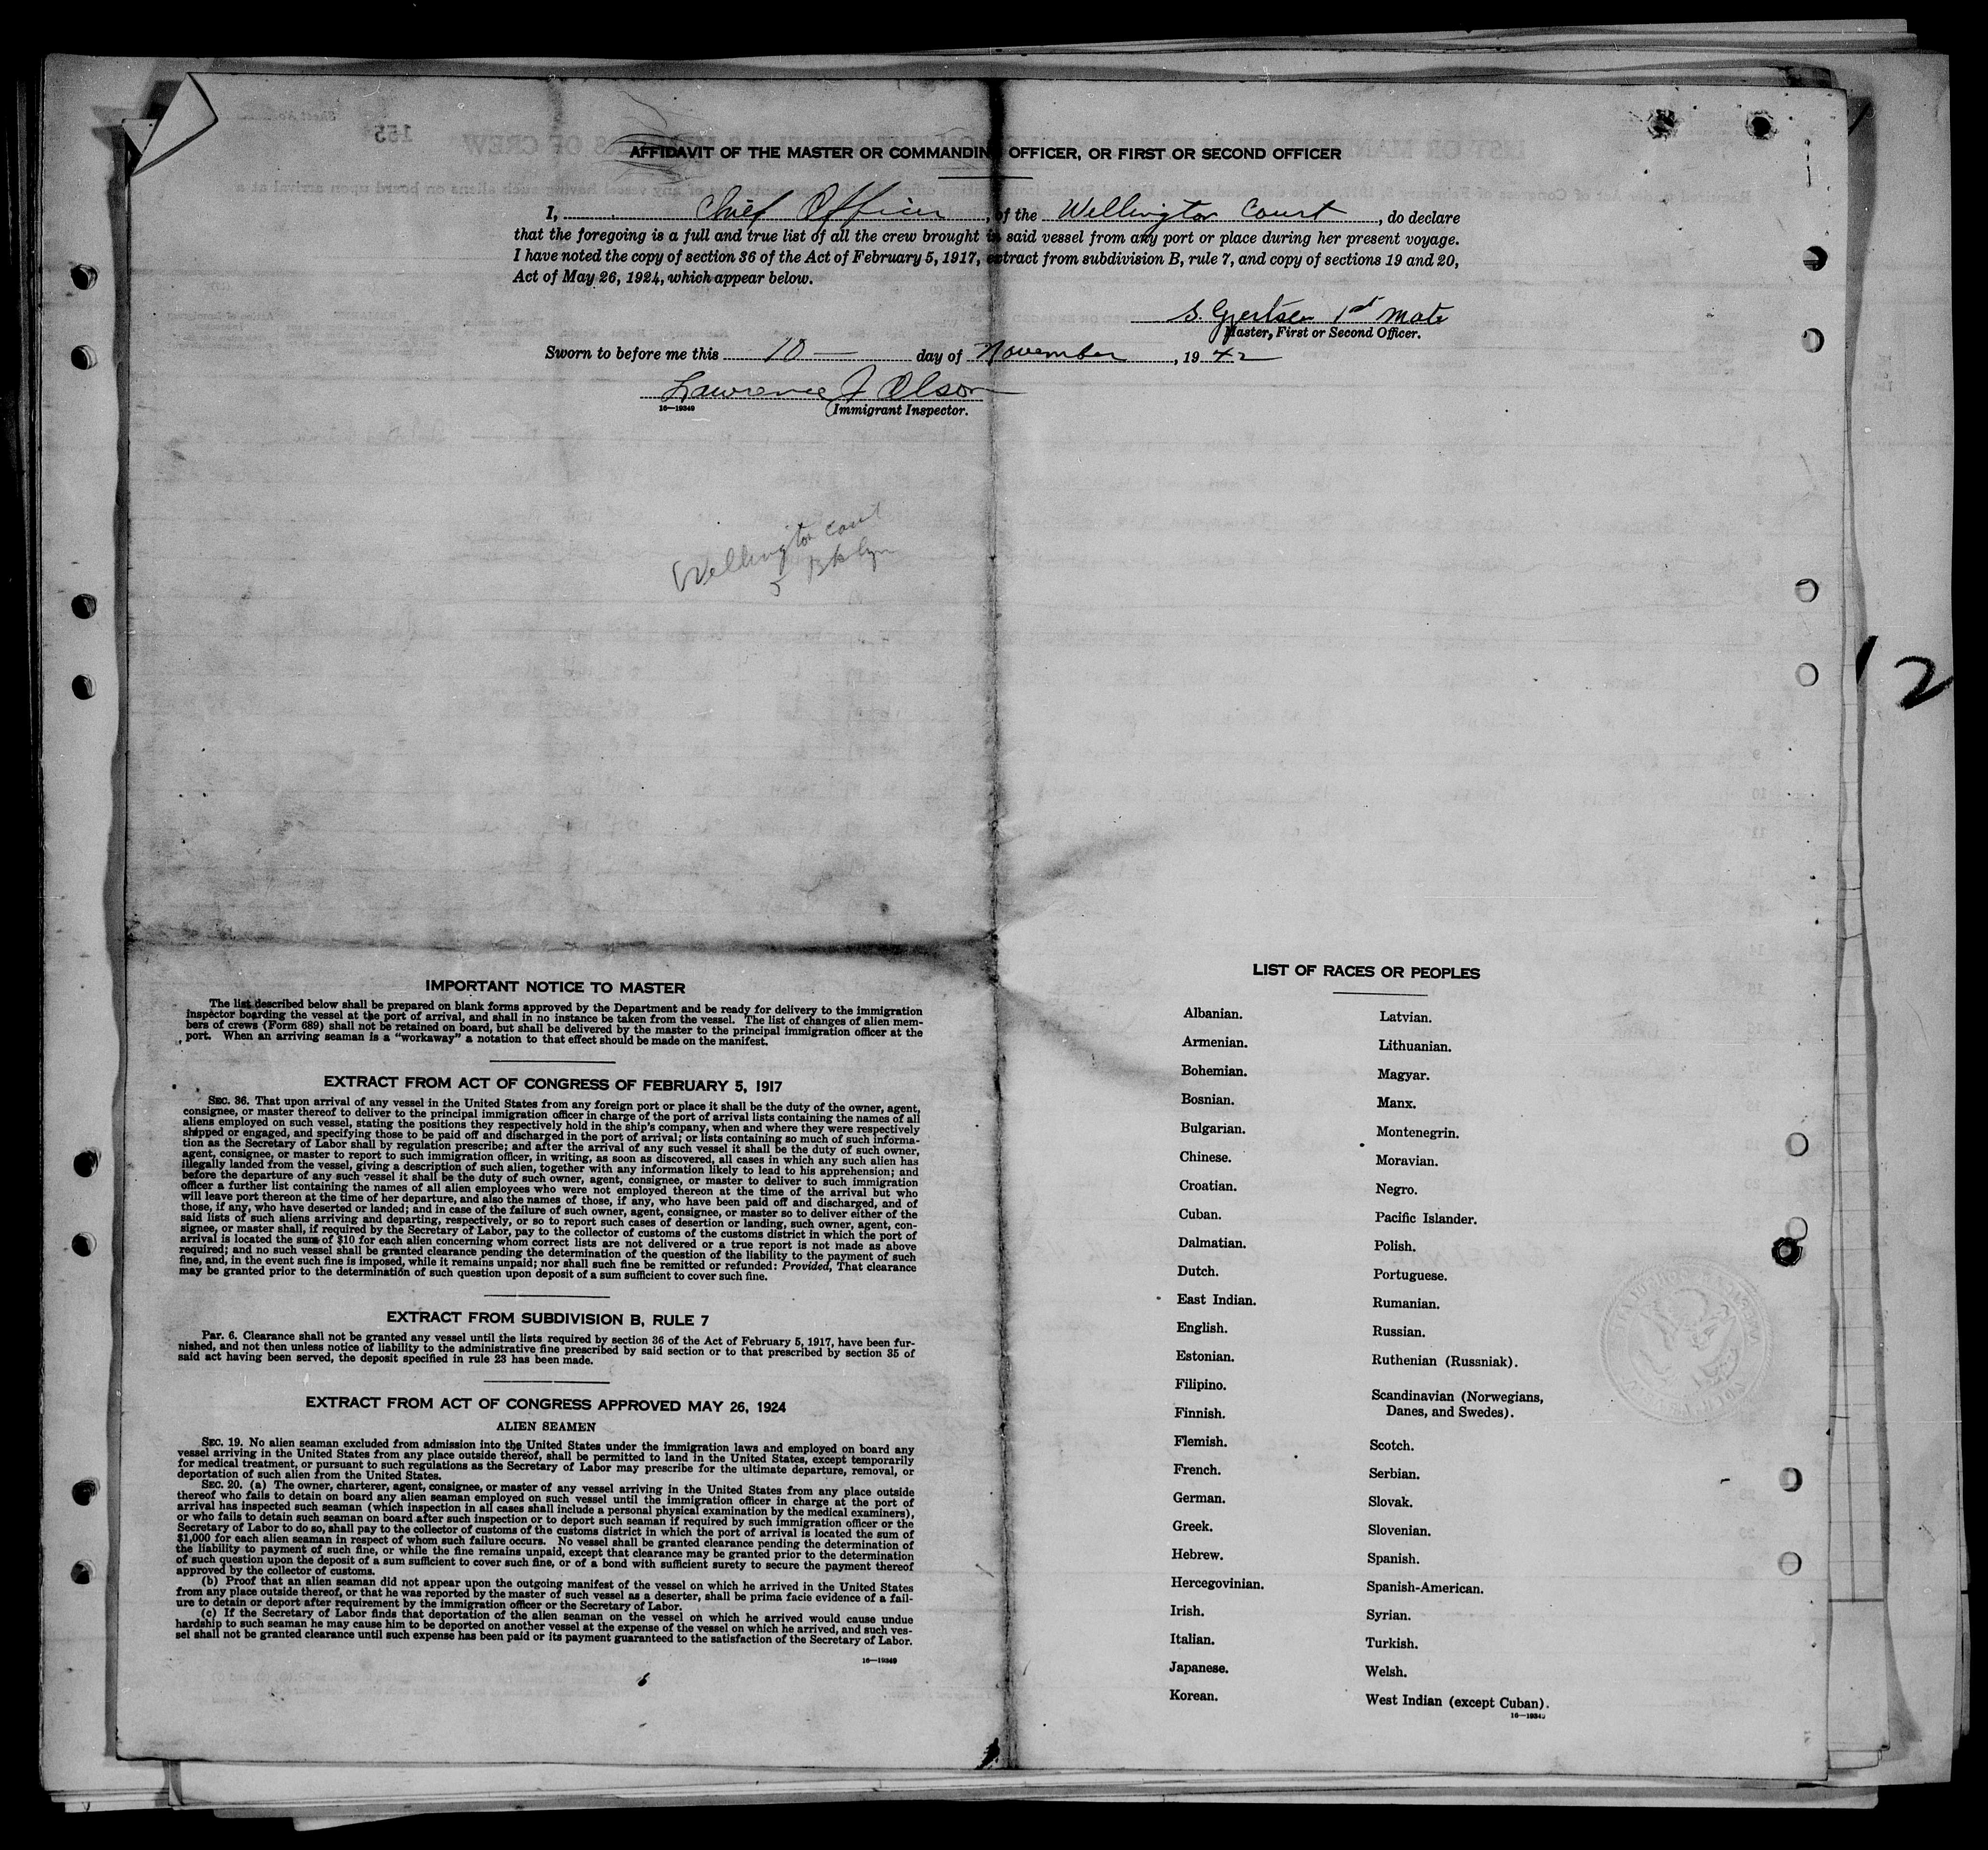 AFFIDAVIT OF THE MASTER OR COMMANDING OFFICER, OR FIRST OR SECOND OFFICER
I, Chief Officer, of the Wellington Court, do declare
that the foregoing is a full and true list of all the crew brought in said vessel from any port or place during her present voyage.
I have noted the copy of section 36 of the Act of February 5, 1917, extract from subdivision B, rule 7, and copy of sections 19 and 20,
Act of May 26, 1924, which appear below.
S. Gjertsen 1st Mate
Master, First or Second Officer.
Sworn to before me this 10 — day of November, 1942
Lawrence J Olson
16—19349 Immigrant Inspector.
Wellington Court
5 Bklyn
12
IMPORTANT NOTICE TO MASTER
The list described below shall be prepared on blank forms approved by the Department and be ready for delivery to the immigration
inspector boarding the vessel at the port of arrival, and shall in no instance be taken from the vessel. The list of changes of alien mem-
bers of crews (Form 689) shall not be retained on board, but shall be delivered by the master to the principal immigration officer at the
port. When an arriving seaman is a "workaway" a notation to that effect should be made on the manifest.
EXTRACT FROM ACT OF CONGRESS OF FEBRUARY 5, 1917
SEC. 36. That upon arrival of any vessel in the United States from any foreign port or place it shall be the duty of the owner, agent,
consignee, or master thereof to deliver to the principal immigration officer in charge of the port of arrival lists containing the names of all
aliens employed on such vessel, stating the positions they respectively hold in the ship's company, when and where they were respectively
shipped or engaged, and specifying those to be paid off and discharged in the port of arrival; or lists containing so much of such informa-
tion as the Secretary of Labor shall by regulation prescribe; and after the arrival of any such vessel it shall be the duty of such owner,
agent, consignee, or master to report to such immigration officer, in writing, as soon as discovered, all cases in which any such alien has
illegally landed from the vessel, giving a description of such alien, together with any information likely to lead to his apprehension; and
before the departure of any such vessel it shall be the duty of such owner, agent, consignee, or master to deliver to such immigration
officer a further list containing the names of all alien employees who were not employed thereon at the time of the arrival but who
will leave port thereon at the time of her departure, and also the names of those, if any, who have been paid off and discharged, and of
those, if any, who have deserted or landed; and in case of the failure of such owner, agent, consignee, or master so to deliver either of the
said lists of such aliens arriving and departing, respectively, or so to report such cases of desertion or landing, such owner, agent, con-
signee, or master shall, if required by the Secretary of Labor, pay to the collector of customs of the customs district in which the port of
arrival is located the sum of $10 for each alien concerning whom correct lists are not delivered or a true report is not made as above
required; and no such vessel shall be granted clearance pending the determination of the question of the liability to the payment of such
fine, and, in the event such fine is imposed, while it remains unpaid; nor shall such fine be remitted or refunded: Provided, That clearance
may be granted prior to the determination of such question upon deposit of a sum sufficient to cover such fine.
EXTRACT FROM SUBDIVISION B, RULE 7
Par. 6. Clearance shall not be granted any vessel until the lists required by section 36 of the Act of February 5, 1917, have been fur-
nished, and not then unless notice of liability to the administrative fine prescribed by said section or to that prescribed by section 35 of
said act having been served, the deposit specified in rule 23 has been made.
EXTRACT FROM ACT OF CONGRESS APPROVED MAY 26, 1924
ALIEN SEAMEN
SEC. 19. No alien seaman excluded from admission into the United States under the immigration laws and employed on board any
vessel arriving in the United States from any place outside thereof, shall be permitted to land in the United States, except temporarily
for medical treatment, or pursuant to such regulations as the Secretary of Labor may prescribe for the ultimate departure, removal, or
deportation of such alien from the United States.
SEC. 20. (a) The owner, charterer, agent, consignee, or master of any vessel arriving in the United States from any place outside
thereof who fails to detain on board any alien seaman employed on such vessel until the immigration officer in charge at the port of
arrival has inspected such seaman (which inspection in all cases shall include a personal physical examination by the medical examiners),
or who fails to detain such seaman on board after such inspection or to deport such seaman if required by such immigration officer or the
Secretary of Labor to do so, shall pay to the collector of customs of the customs district in which the port of arrival is located the sum of
$1,000 for each alien seaman in respect of whom such failure occurs. No vessel shall be granted clearance pending the determination of
the liability to payment of such fine, or while the fine remains unpaid, except that clearance may be granted prior to the determination
of such question upon the deposit of a sum sufficient to cover such fine, or of a bond with sufficient surety to secure the payment thereof
approved by the collector of customs.
(b) Proof that an alien seaman did not appear upon the outgoing manifest of the vessel on which he arrived in the United States
from any place outside thereof, or that he was reported by the master of such vessel as a deserter, shall be prima facie evidence of a fail-
ure to detain or deport after requirement by the immigration officer or the Secretary of Labor.
(c) If the Secretary of Labor finds that deportation of the alien seaman on the vessel on which he arrived would cause undue
hardship to such seaman he may cause him to be deported on another vessel at the expense of the vessel on which he arrived, and such ves-
sel shall not be granted clearance until such expense has been paid or its payment guaranteed to the satisfaction of the Secretary of Labor.
16—19349
LIST OF RACES OR PEOPLES
Albanian.
Armenian.
Bohemian.
Bosnian.
Bulgarian.
Chinese.
Croatian.
Cuban.
Dalmatian.
Dutch.
East Indian.
English.
Estonian.
Filipino.
Finnish.
Flemish.
French.
German.
Greek.
Hebrew.
Hercegovinian.
Irish.
Italian.
Japanese.
Korean.
Latvian.
Lithuanian.
Magyar.
Manx.
Montenegrin.
Moravian.
Negro.
Pacific Islander.
Polish.
Portuguese.
Rumanian.
Russian.
Ruthenian (Russniak).
Scandinavian (Norwegians,
Danes, and Swedes).
Scotch.
Serbian.
Slovak.
Slovenian.
Spanish.
Spanish-American.
Syrian.
Turkish.
Welsh.
West Indian (except Cuban).
16—19349